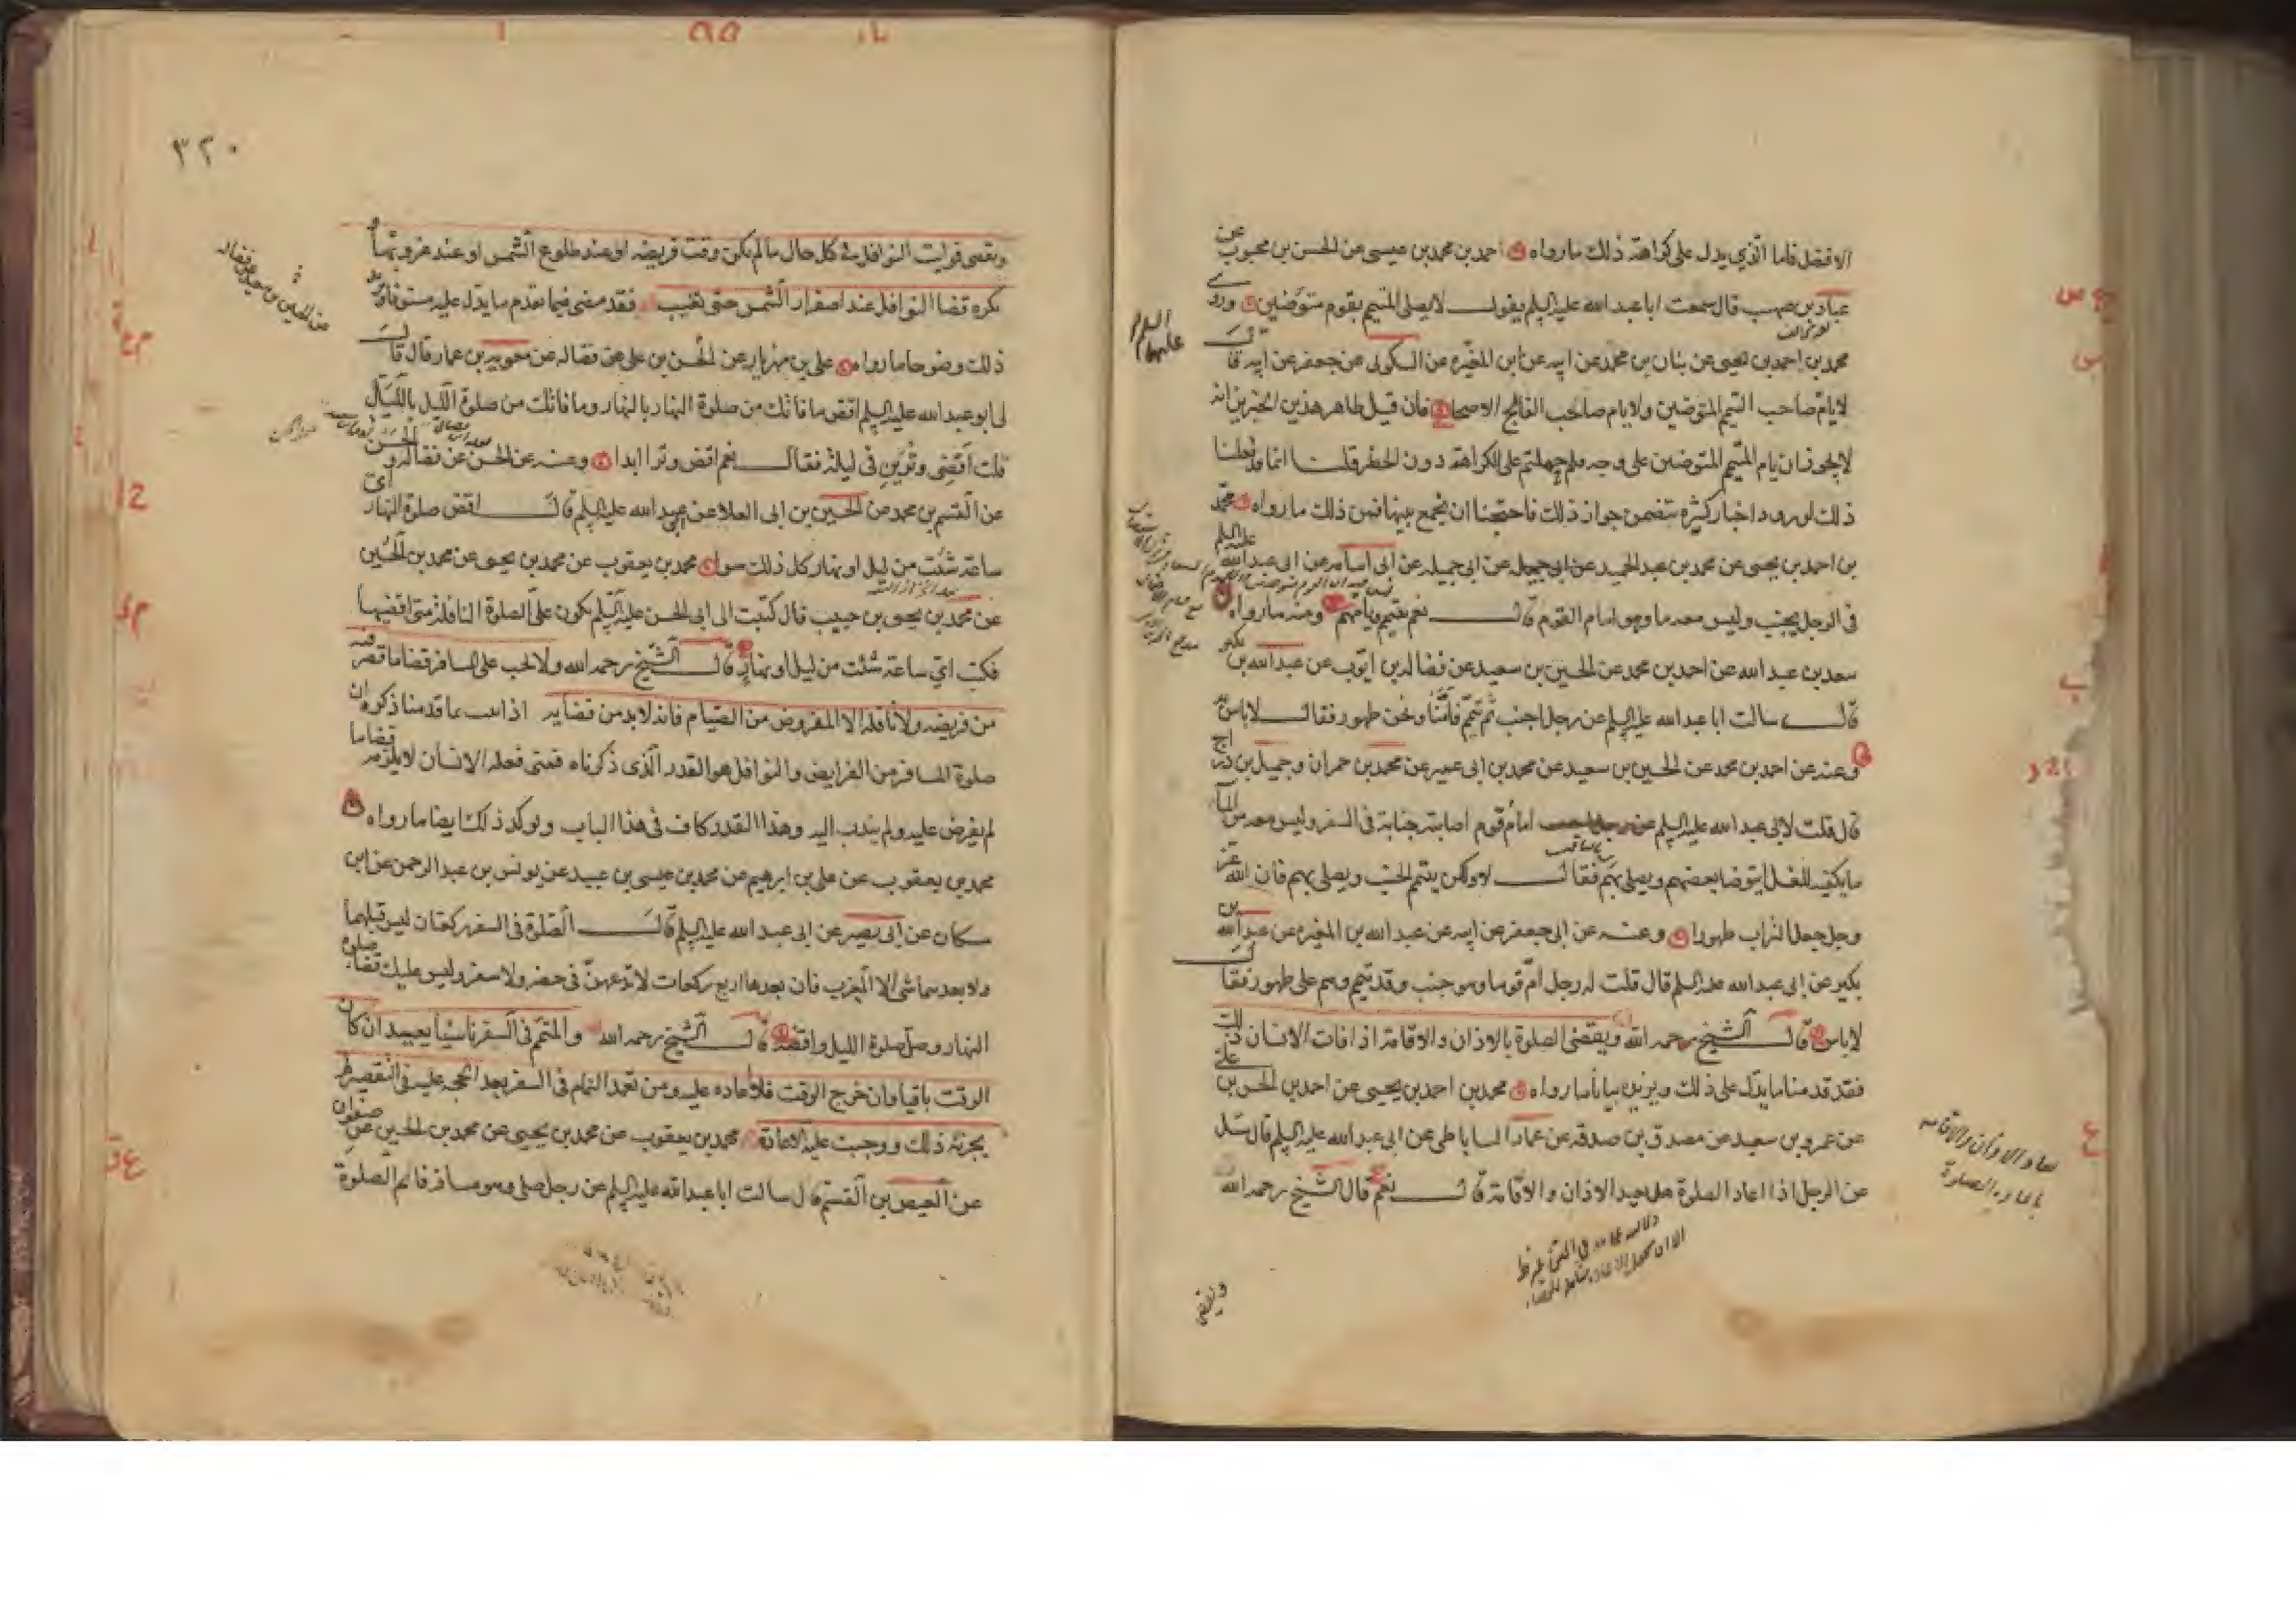 الافضل فاما الذي يدل على كراهة ذلك ما رواه احمد بن محمد بن عيسى عن الحسن بن محبوب عن
عباد بن صهيب قال سمعت ابا عبد الله عليه السلم يقول لا يصلى المتيمم بقوم متوضئين وروى
محمد بن احمد بن يحيى عن بنان بن محمد عن ابيه عن ابن المغيره عن السكونى عن جعفر عن ابيه قال
عليهما السلام
لا يؤم صاحب التيمم المتوضئين ولا يؤم صاحب الفالج الاصحا فان قيل ظاهر هذين الخبرين انه
لا يجوز ان يام المتيمم المتوضئين على وجه فلم حملتم على الكراهة دون الحظر قلنا انما فعلنا
ذلك لورود اخبار كثيرة تتضمن جواز ذلك فاحتجنا ان نجمع بينها فمن ذلك ما رواه محمد
بن احمد بن يحيى عن محمد بن عبد الحميد عن ابى جميله عن ابى اسامه عن ابى عبد الله عليه السلم
فى الرجل يجنب وليس معه ما وهو امام القوم قال نعم يتيمم ويامهم ومنه ما رواه
سعد بن عبد الله عن احمد بن محمد عن الحسين بن سعيد عن فضاله بن ايوب عن عبد الله بن بكير
قال سالت ابا عبد الله عليه السلم عن رجل اجنب ثم تيمم فامنا ونحن طهور فقال لا باس به
وعنه عن احمد بن محمد عن الحسين بن سعيد عن محمد بن ابى عمير عن محمد بن حمران وجميل بن دراج
قال قلت لابى عبد الله عليه السلم امام قوم اصابته جنابة فى السفر وليس معه من الما
ما يكفيه للغسل ايتوضا بعضهم ويصلى بهم فقال لا ولكن يتيمم الجنب ويصلى بهم فان الله عز
وجل جعل التراب طهورا وعنه عن ابى جعفر عن ابيه عن عبد الله بن المغيره عن عبد الله بن
بكير عن ابى عبد الله عليه السلم قال قلت له رجل ام قوما وهو جنب وقد تيمم وهم على طهور فقال
لا باس قال الشيخ رحمه الله ويقضى الصلوة بالاذان والاقامة اذا فات الانسان ذلك
فقد قدمنا ما يدل على ذلك ويزيده بيانا ما رواه محمد بن احمد بن يحيى عن احمد بن الحسن بن على
عن عمرو بن سعيد عن مصدق بن صدقه عن عمار الساباطى عن ابى عبد الله عليه السلم قال سئل
عن الرجل اذا اعاد الصلوة هل يعيد الاذان والاقامة قال نعم قال الشيخ رحمه الله
ويقضى
٣٢٠
ويقضى فوايت النوافل فى كل حال ما لم يكن وقت فريضه او عند طلوع الشمس او عند غروبها
يكره قضا النوافل عند اصفرار الشمس حتى تغيب فقد مضى فيما تقدم ما يدل عليه مستوفا ويزيد
ذلك وضوحا ما رواه على بن مهزيار عن الحسن بن على عن فضاله عن معويه بن عمار قال قال
لى ابو عبد الله عليه السلم اقض ما فاتك من صلوة النهار بالنهار وما فاتك من صلوة الليل بالليل
قلت اقضى وترين فى ليلة فقال نعم اقض وترا ابدا وعنه عن الحسن عن فضاله
عن القسم بن محمد عن الحسين بن ابى العلا عن ابى عبد الله عليه السلم قال اقض صلوة النهار اى
ساعة شئت من ليل او نهار كل ذلك سوا محمد بن يعقوب عن محمد بن يحيى عن محمد بن الحسين
عن محمد بن يحيى بن حبيب قال كتبت الى ابى الحسن عليه السلم يكون على الصلوة النافلة متى اقضيها
فكتب اى ساعة شئت من ليل او نهار قال الشيخ رحمه الله ولا تجب على المسافر قضا ما قصر فيه
من فريضه ولا نافلة الا المفروض من الصيام فانه لا بد من قضايه اذا ثبت بما قدمنا ذكره ان
صلوة المسافر من الفرايض والنوافل هو القدر الذى ذكرناه فمتى فعله الانسان لا يلزمه قضا ما
لم يفرض عليه ولم يندب اليه وهذا القدر كاف فى هذا الباب ويوكد ذلك ايضا ما رواه
محمد بن يعقوب عن على بن ابرهيم عن محمد بن عيسى بن عبيد عن يونس بن عبد الرحمن عن ابن
مسكان عن ابى بصير عن ابى عبد الله عليه السلم قال الصلوة فى السفر ركعتان ليس قبلهما
ولا بعدهما شى الا المغرب فان بعدها اربع ركعات لا تدعهن فى حضر ولا سفر وليس عليك قضا صلوة
النهار وصل صلوة الليل واقضه قال الشيخ رحمه الله والمتمم فى السفر ناسيا يعيد ان كان
الوقت باقيا وان خرج الوقت فلا اعاده عليه ومن تعمد التمام فى السفر بعد الحجه عليه فى التقصير لم
يجزئه ذلك ووجبت عليه الاعادة محمد بن يعقوب عن محمد بن يحيى عن محمد بن الحسين عن صفوان
عن العيص بن القسم قال سالت ابا عبد الله عليه السلم عن رجل صلى وهو مسافر فاتم الصلوة